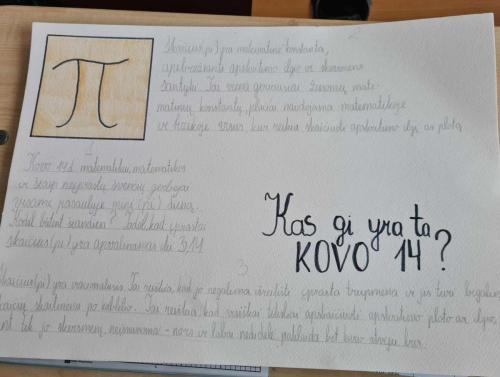 π
2
Skaičius (pi) yra matematinė konstanta,
apibrėžianti apskritimo ilgio ir skersmens
santykį. Tai viena geriausiai žinomų mate-
matinių konstantų, plačiai naudojama matematikoje
ir fizikoje visur, kur reikia skaičiuoti apskritimo ilgį ar plotą
1
Kovo 14 d. matematikai, matematikos
ir šiaip neįprastų švenčių gerbėjai
visame pasaulyje mini (pi) dieną.
Kodėl būtent šiandien? Todėl, kad įprastai
skaičius (pi) yra apvalinamas iki 3,14
Kas gi yra ta
KOVO 14?
3
Skaičius (pi) yra iracionalusis. Tai reiškia, kad jo negalima išreikšti paprasta trupmena ir jis turi begalinį
skaičių skaitmenų po kablelio. Tai reiškia, kad visiškai tiksliai apskaičiuoti apskritimo ploto ar ilgio,
tik jo skersmenį, neįmanoma - nors ir labai nedidelė, paklaida bet kuriuo atveju bus.